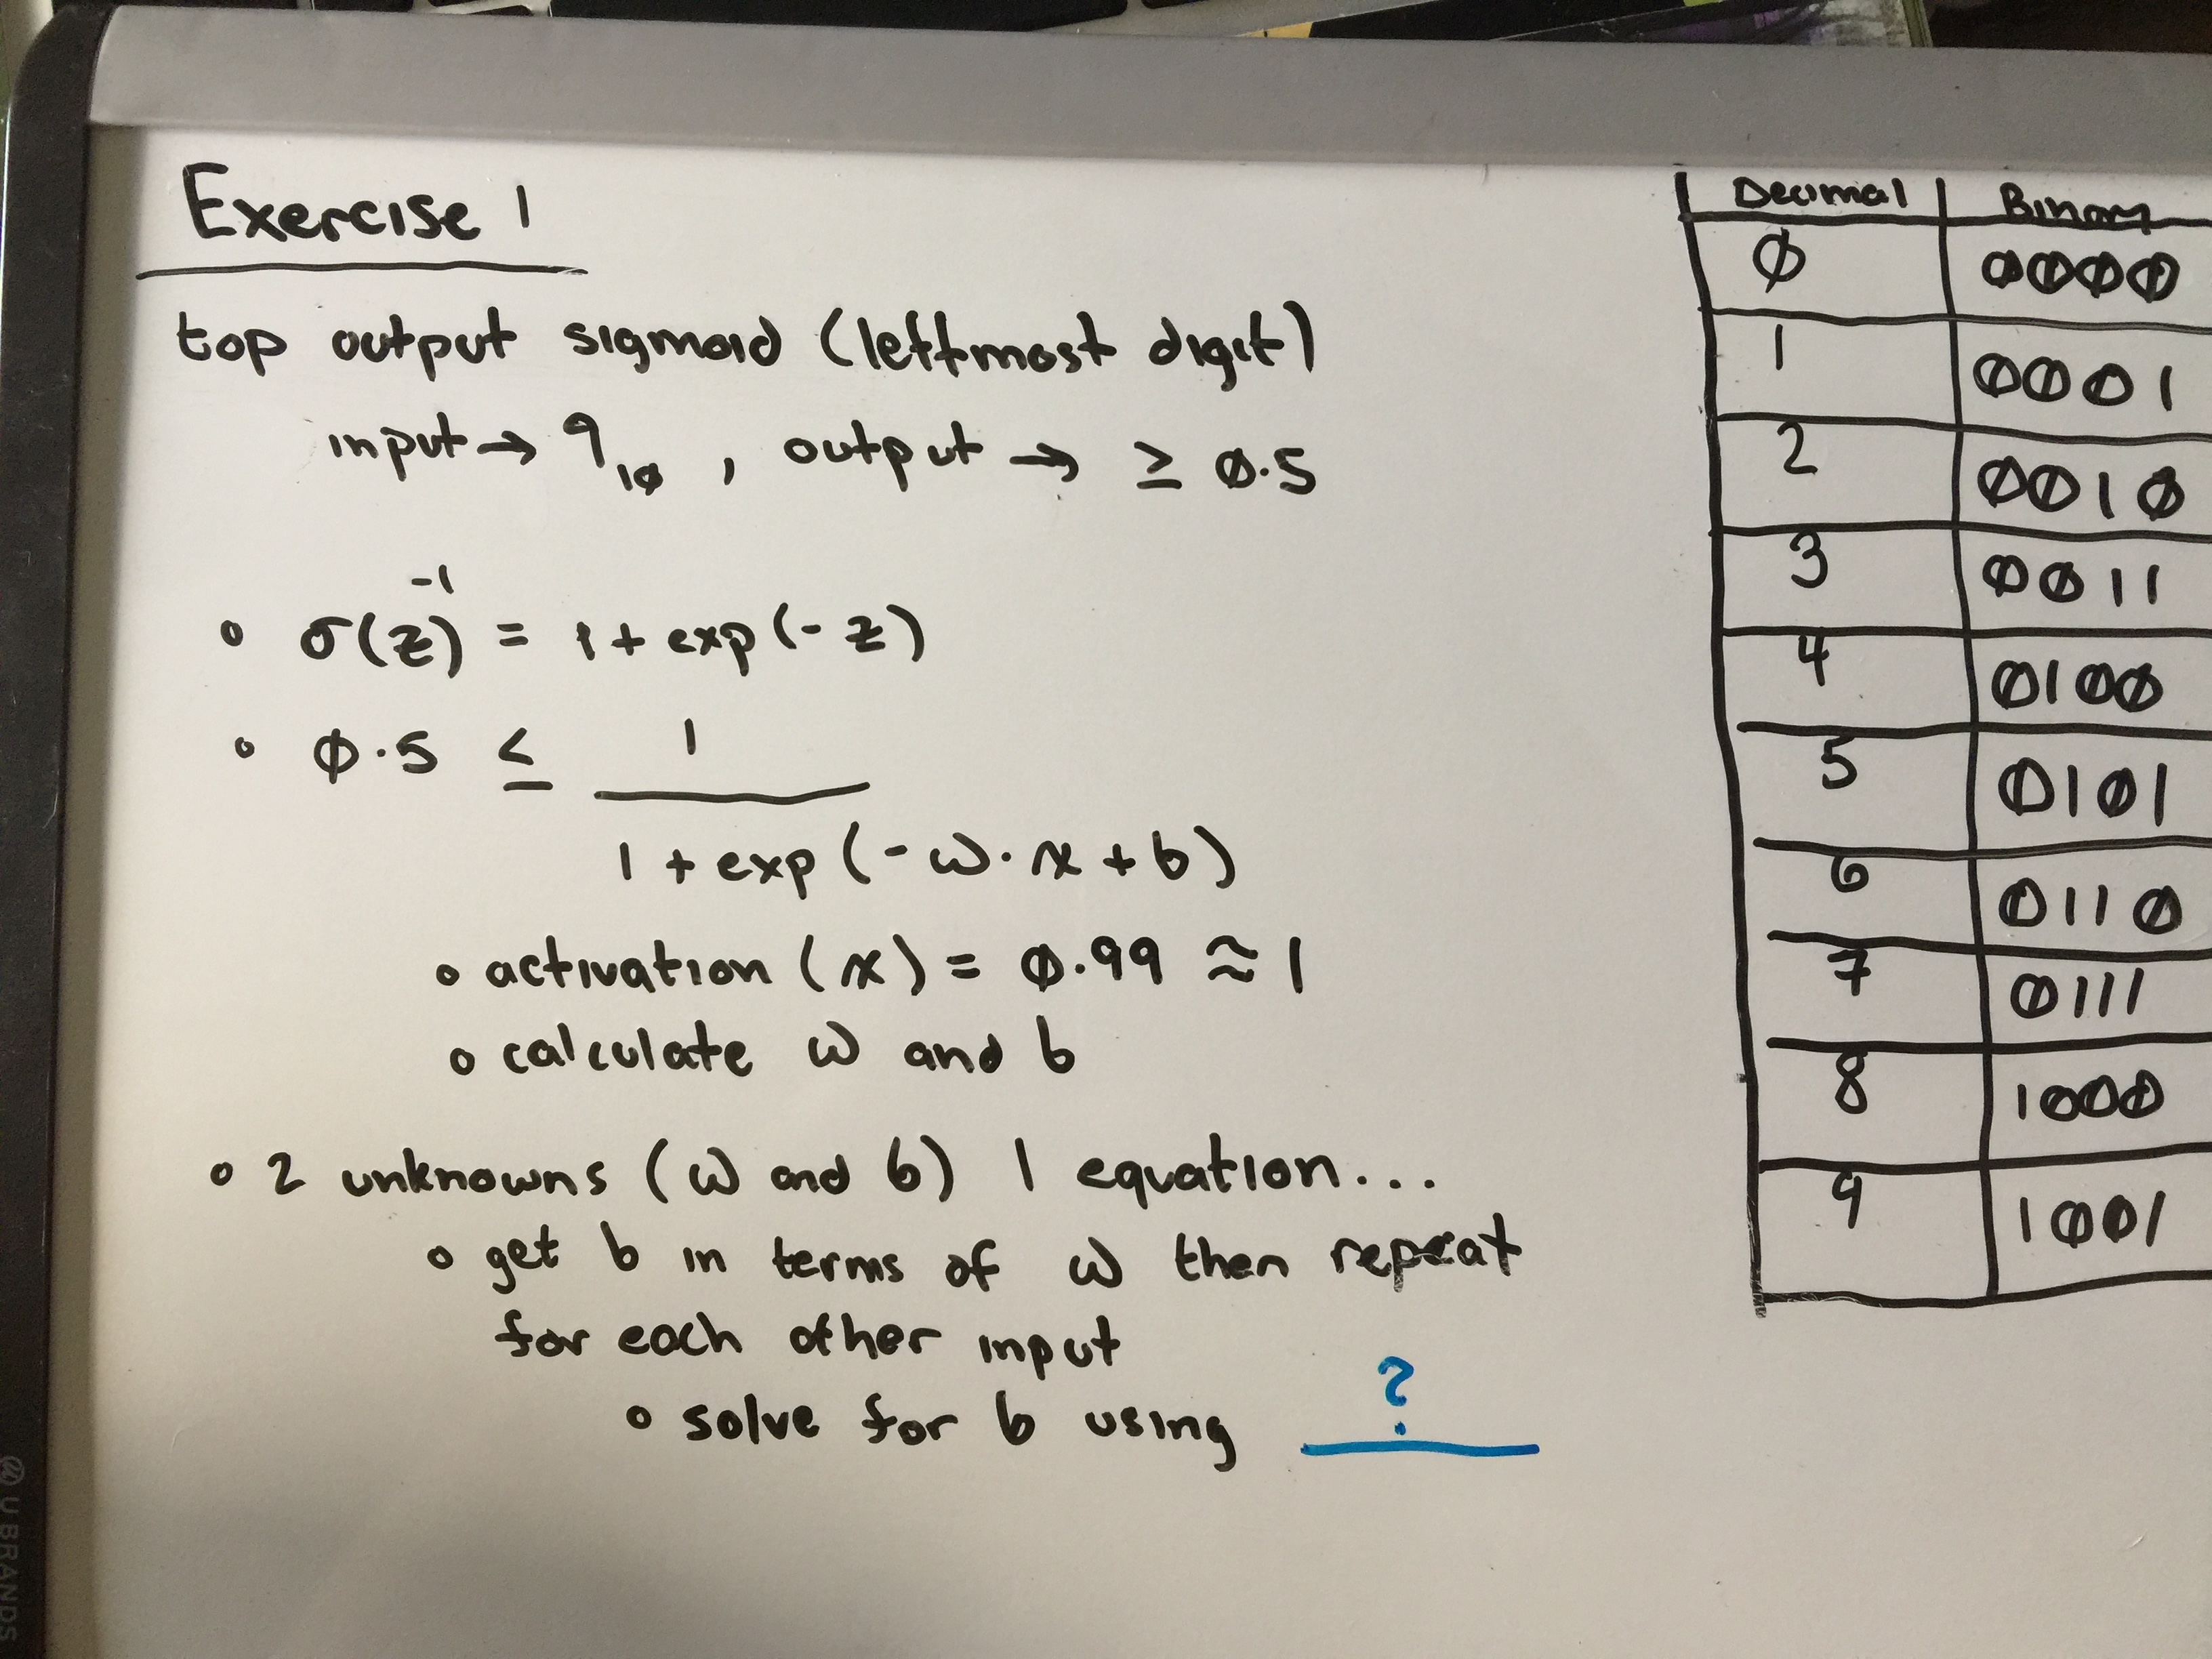 Exercise 1
top output sigmoid (leftmost digit)
input → 9₁₀ , output → ≥ 0.5
• σ(z)⁻¹ = 1 + exp(-z)
• 0.5 ≤ 1
1 + exp(-ω·x + b)
• activation (x) = 0.99 ≈ 1
• calculate ω and b
• 2 unknowns (ω and b) 1 equation...
• get b in terms of ω then repeat
for each other input
• solve for b using ?
Decimal Binary
0 0000
1 0001
2 0010
3 0011
4 0100
5 0101
6 0110
7 0111
8 1000
9 1001
U BRANDS